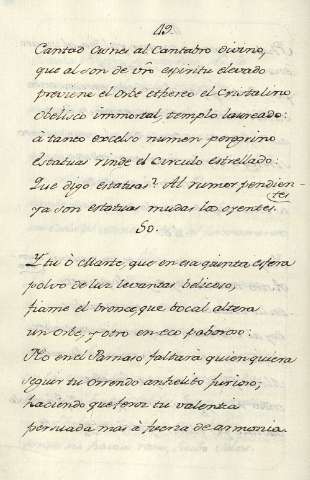 49.
Cantad Cisnes al Cantabro divino,
que al son de vr̃o espiritu elevado
previene el Orbe ethereo el Cristalino
Obelisco immortal, templo laureado:
â tanto excelso numen peregrino
Estatuas rinde el Circulo estrellado:
Que digo estatuas? Al rumor pendien-
tes
ya son estatuas mudas los oyentes.
50.
Y tu ò Marte, que en esa quinta esfera
polvo de luz levantas belicoso,
fiame el bronce, que bocal altera
un Orbe, y otro en eco paboroso:
No en el Parnaso faltara quien quiera
seguir tu orrendo anhelito furioso;
haciendo que feroz tu valentia
persuada mas â fuerza de armonia.